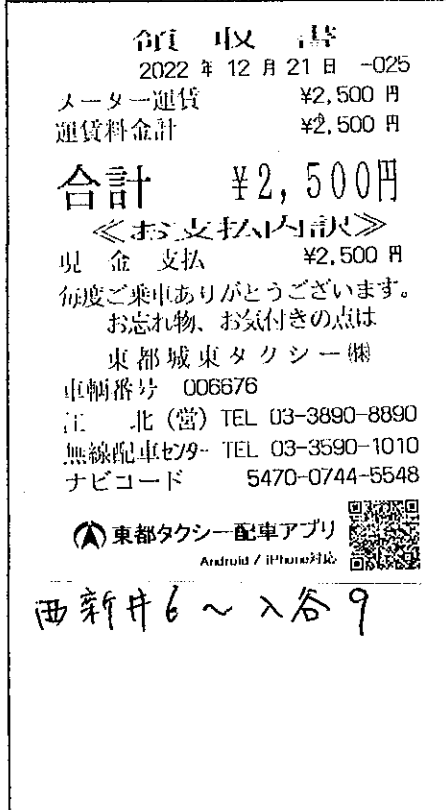 領収書
2022 年 12 月 21 日 -025
メーター運賃 ¥2,500 円
運賃料金計 ¥2,500 円
合計 ¥2,500円
≪お支払内訳≫
現 金 支払 ¥2,500 円
毎度ご乗車ありがとうございます。
お忘れ物、お気付きの点は
東都城東タクシー㈱
車輌番号 006676
江 北 (営) TEL 03-3890-8890
無線配車センター TEL 03-3590-1010
ナビコード 5470-0744-5548
東都タクシー配車アプリ
Android / iPhone対応
西新井6 〜 入谷9